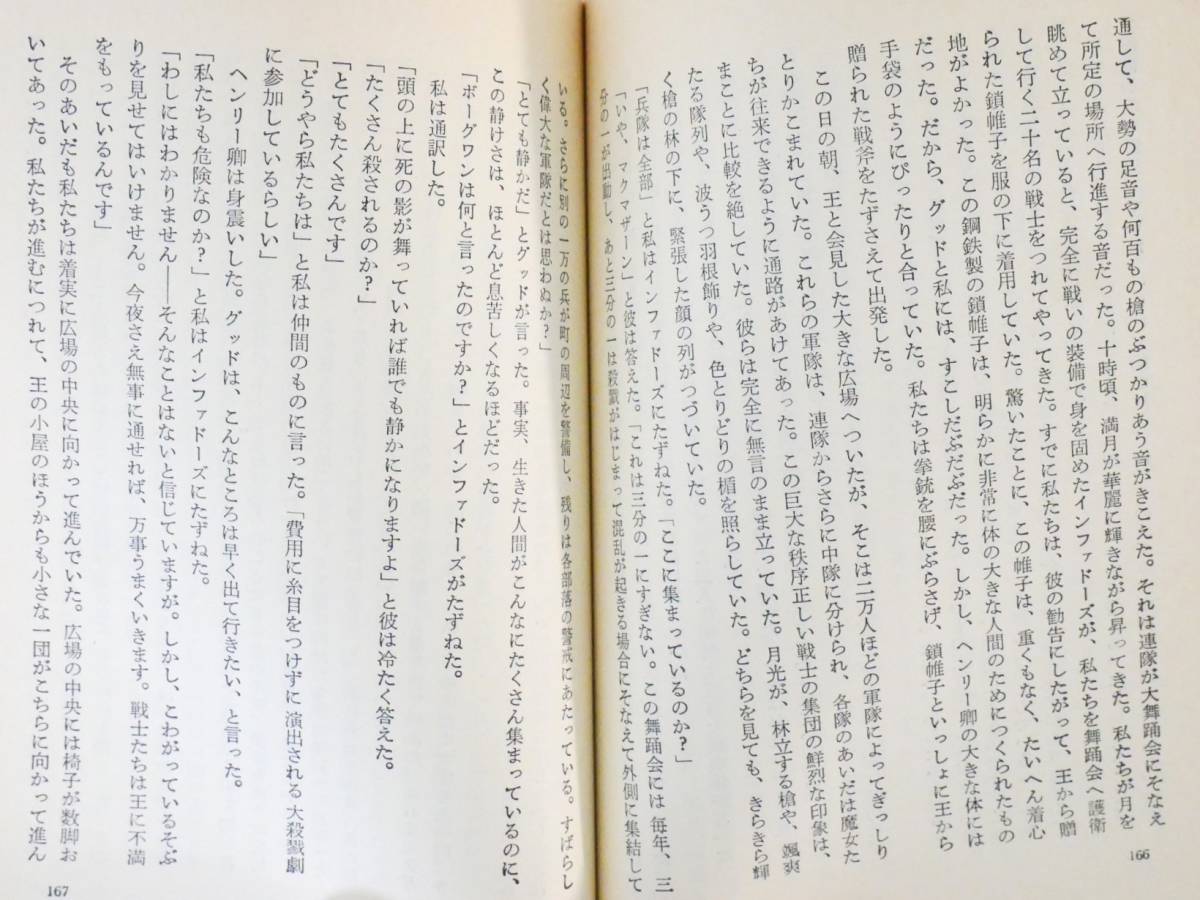 通して、大勢の足音や何百もの槍のぶつかりあう音がきこえた。それは連隊が大舞踊会にそなえ
て所定の場所へ行進する音だった。十時頃、満月が華麗に輝きながら昇ってきた。私たちが月を
眺めて立っていると、完全に戦いの装備で身を固めたインファドーズが、私たちを舞踊会へ護衛
して行く二十名の戦士をつれてやってきた。すでに私たちは、彼の勧告にしたがって、王から贈
られた鎖帷子を服の下に着用していた。驚いたことに、この帷子は、重くもなく、たいへん着心
地がよかった。この鋼鉄製の鎖帷子は、明らかに非常に体の大きな人間のためにつくられたもの
だった。だから、グッドと私には、すこしだぶだぶだった。しかし、ヘンリー卿の大きな体には
手袋のようにぴったりと合っていた。私たちは拳銃を腰にぶらさげ、鎖帷子といっしょに王から
贈られた戦斧をたずさえて出発した。
この日の朝、王と会見した大きな広場へついたが、そこは二万人ほどの軍隊によってぎっしり
とりかこまれていた。これらの軍隊は、連隊からさらに中隊に分けられ、各隊のあいだは魔女た
ちが往来できるように通路があけてあった。この巨大な秩序正しい戦士の集団の鮮烈な印象は、
まことに比較を絶していた。彼らは完全に無言のまま立っていた。月光が、林立する槍や、颯爽
たる隊列や、波うつ羽根飾りや、色とりどりの楯を照らしていた。どちらを見ても、きらきら輝
く槍の林の下に、緊張した顔の列がつづいていた。
「兵隊は全部」と私はインファドーズにたずねた。「ここに集まっているのか?」
「いや、マクマザーン」と彼は答えた。「これは三分の一にすぎない。この舞踊会には毎年、三
分の一が出動し、あと三分の一は殺戮がはじまって混乱が起きる場合にそなえて外側に集結して
166
いる。さらに別の一万の兵が町の周辺を警備し、残りは各部落の警戒にあたっている。すばらし
く偉大な軍隊だとは思わぬか?」
「とても静かだ」とグッドが言った。事実、生きた人間がこんなにたくさん集まっているのに、
この静けさは、ほとんど息苦しくなるほどだった。
「ボーグワンは何と言ったのですか?」とインファドーズがたずねた。
私は通訳した。
「頭の上に死の影が舞っていれば誰でも静かになりますよ」と彼は冷たく答えた。
「たくさん殺されるのか?」
「とてもたくさんです」
「どうやら私たちは」と私は仲間のものに言った。「費用に糸目をつけずに演出される大殺戮劇
に参加しているらしい」
ヘンリー卿は身震いした。グッドは、こんなところは早く出て行きたい、と言った。
「私たちも危険なのか?」と私はインファドーズにたずねた。
「わしにはわかりません――そんなことはないと信じていますが。しかし、こわがっているそぶ
りを見せてはいけません。今夜さえ無事に通せれば、万事うまくいきます。戦士たちは王に不満
をもっているんです」
そのあいだも私たちは着実に広場の中央に向かって進んでいた。広場の中央には椅子が数脚お
いてあった。私たちが進むにつれて、王の小屋のほうからも小さな一団がこちらに向かって進ん
167